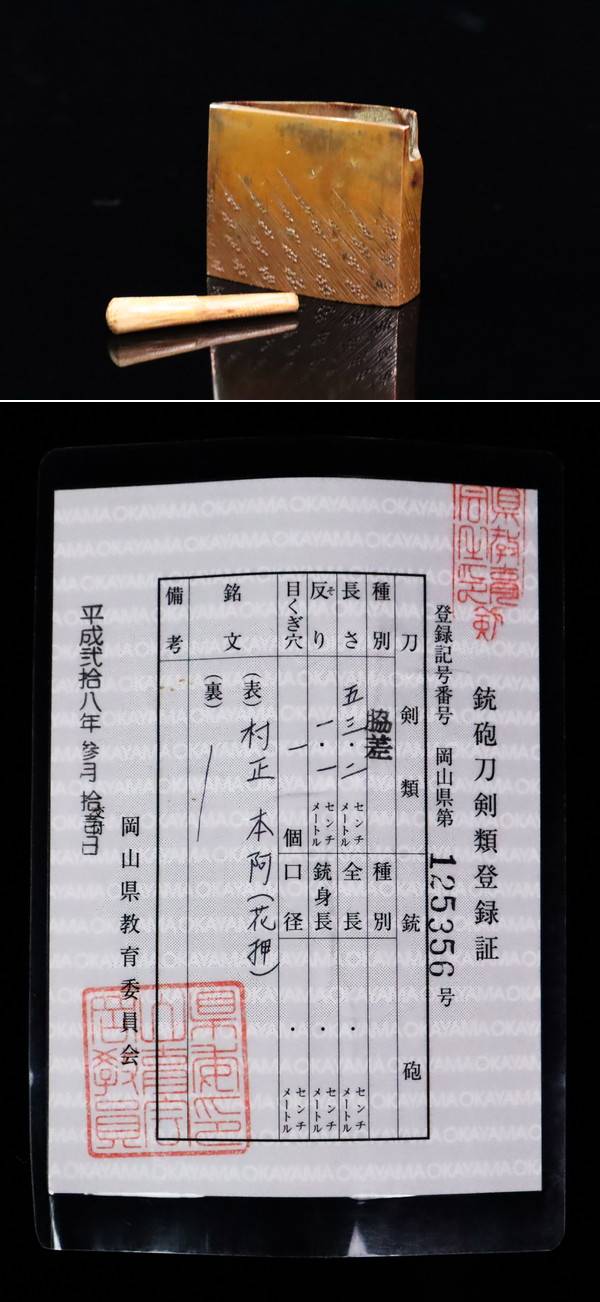 銃砲刀剣類登録証
登録記号番号 岡山県第 125356 号
刀剣類
銃砲
種別 脇差
種別
長さ 五三・二 センチメートル
全長 ・ センチメートル
反り そ 一・一 センチメートル
銃身長 ・ センチメートル
目くぎ穴 一 個
口径 ・ センチメートル
銘文 (表) 村正 本阿(花押)
(裏)
備考
平成弐拾八年 参月
岡山県教育委員会
OKAYAMA OKAYAMA OKAYAMA